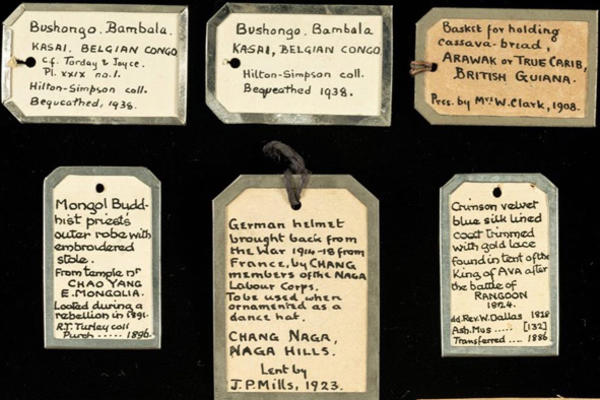 Bushongo. Bambala.
KASAI, BELGIAN CONGO
Cf. Torday & Joyce.
Pl. XXIX no. 1.
Hilton-Simpson coll.
Bequeathed, 1938.
Bushongo. Bambala
KASAI, BELGIAN CONGO
Hilton-Simpson coll.
Bequeathed 1938.
Basket for holding
cassava-bread,
ARAWAK or TRUE CARIB,
BRITISH GUIANA.
Pres. by Mrs W. Clark, 1908.
Mongol Budd-
hist priest's
outer robe with
embroidered
stole.
From temple nr
CHAO YANG
E. MONGOLIA.
Looted during a
rebellion in 1891.
R.T. Turley coll
Purch ..... 1896.
German helmet
brought back from
the War 1914-18 from
France, by CHANG
members of the NAGA
Labour Corps.
To be used when
ornamented as a
dance hat.
CHANG NAGA,
NAGA HILLS.
Lent by
J.P. Mills, 1923.
Crimson velvet
blue silk lined
coat trimmed
with gold lace
found in tent of the
King of AVA after
the battle of
RANGOON
1824.
dd. Rev. W. Dallas 1828
Ash. Mus ..... [132]
Transferred .... 1886